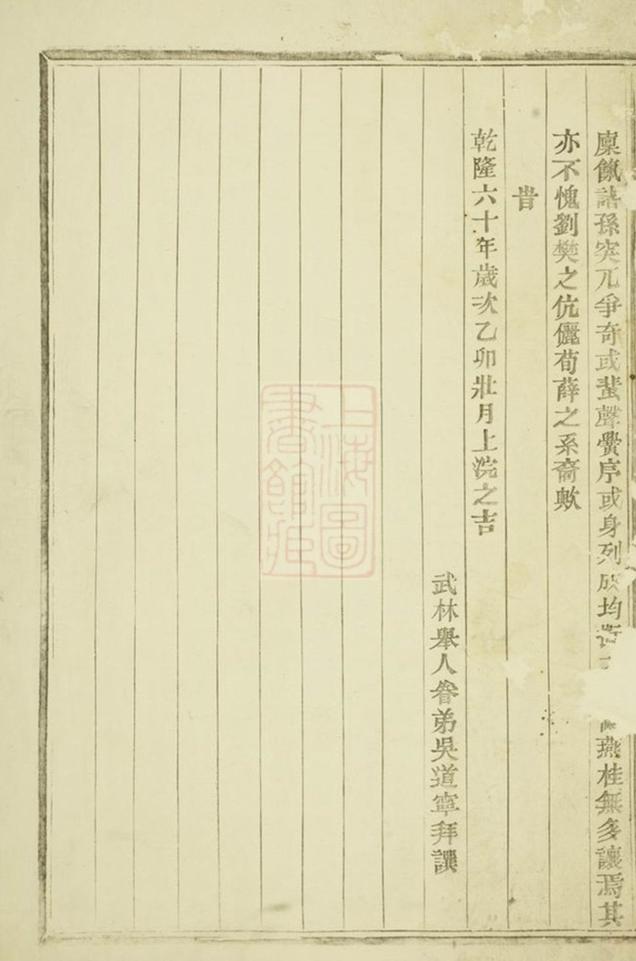 廩餼諸孫突兀爭奇或蜚聲黌序或身列成均 燕桂無多讓焉其
亦不愧劉樊之伉儷荀薛之系裔歟
昔
乾隆六十年歲次乙卯壯月上浣之吉
武林舉人眷弟吳道寧拜譔
上海圖書館藏